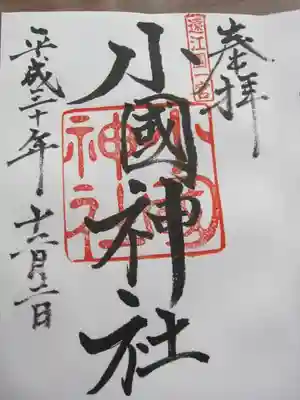 奉拝
遠江国一宮
小國神社
小國神社
平成三十年
十二月二日